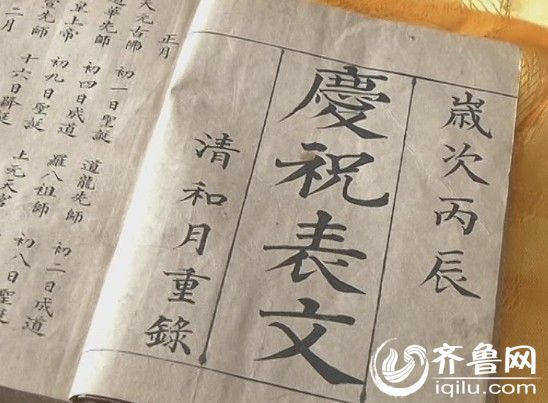 嵗次丙辰
慶祝表文
清和月重錄
正月
天元古佛 初一日聖誕 道龍先師 初二日成道
道華先師 初四日成道 羅八祖師 初八日聖誕
皇上帝 初九日聖誕 上元天官
先師 十六日
二月
齐鲁网
iqilu.com